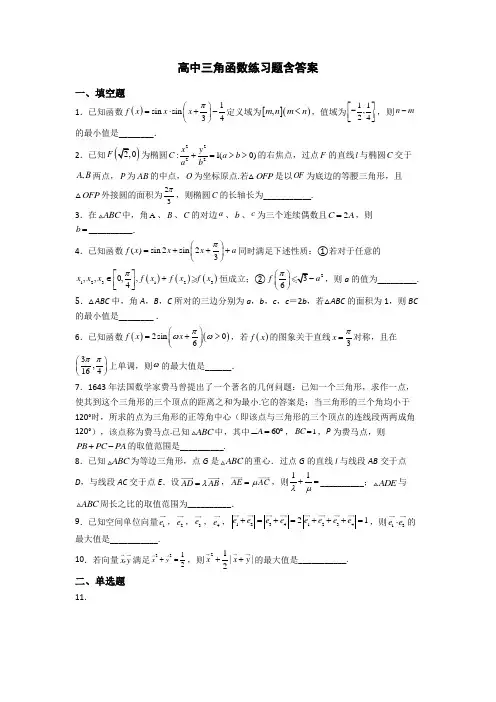 高中三角函数练习题含答案
一、填空题
1．已知函数 f(x)=sin x·sin(x+π/3)−1/4 定义域为[m,n](m<n)，值域为[−1/2,1/4]，则 n−m
的最小值是________．
2．已知F(√2,0)为椭圆 C:x²/a²+y²/b²=1(a>b>0) 的右焦点，过点 F 的直线 l 与椭圆 C 交于
A,B 两点，P 为 AB 的中点，O 为坐标原点.若△OFP 是以 OF 为底边的等腰三角形，且
△OFP 外接圆的面积为 2π/3，则椭圆 C 的长轴长为___________.
3．在△ABC 中，角A、B、C 的对边 a、b、c 为三个连续偶数且 C=2A，则
b=__________．
4．已知函数 f(x)=sin2x+sin(2x+π/3)+a 同时满足下述性质：①若对于任意的
x₁,x₂,x₃∈[0,π/4],f(x₁)+f(x₂)⩾f(x₃) 恒成立；②f(π/6)⩽√3−a²，则 a 的值为_________．
5．△ABC 中，角 A，B，C 所对的三边分别为 a，b，c，c＝2b，若△ABC 的面积为 1，则 BC
的最小值是________ .
6．已知函数 f(x)=2sin(ωx+π/6)(ω>0)，若 f(x) 的图象关于直线 x=π/3 对称，且在
(3π/16,π/4) 上单调，则 ω 的最大值是______．
7．1643 年法国数学家费马曾提出了一个著名的几何问题：已知一个三角形，求作一点，
使其到这个三角形的三个顶点的距离之和为最小.它的答案是：当三角形的三个角均小于
120°时，所求的点为三角形的正等角中心（即该点与三角形的三个顶点的连线段两两成角
120°），该点称为费马点.已知△ABC 中，其中∠A=60°，BC=1，P 为费马点，则
PB+PC−PA 的取值范围是__________.
8．已知△ABC 为等边三角形，点 G 是△ABC 的重心．过点 G 的直线 l 与线段 AB 交于点
D，与线段 AC 交于点 E．设 AD=λAB，AE=μAC，则 1/λ+1/μ=__________；△ADE 与
△ABC 周长之比的取值范围为__________．
9．已知空间单位向量 e₁，e₂，e₃，e₄，|e₁+e₂|=|e₃+e₄|=2|e₁+e₂+e₃+e₄|=1，则 e₁·e₃ 的
最大值是___________．
10．若向量 x,y 满足 x²+y²=1/2，则 x²+1/2|x+y| 的最大值是___________．
二、单选题
11．